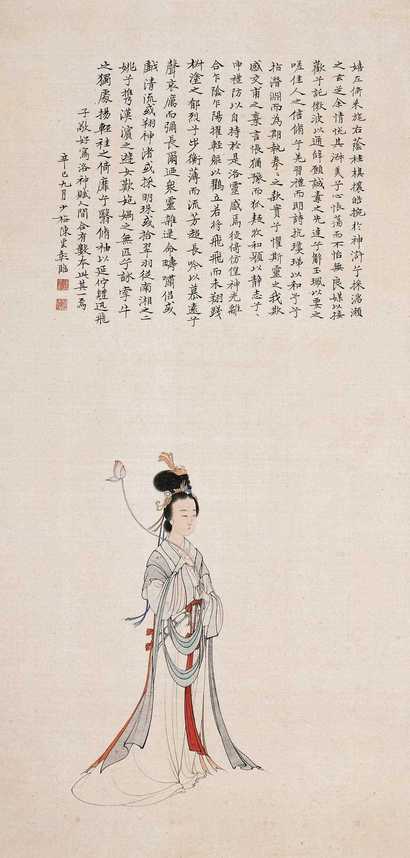 嬉左倚采旄右蔭桂旗攘皓捥於神滸兮採湍瀨
之玄芝余情恱其淑美兮心振蕩而不怡無良媒以接
歡兮託微波以通辭願誠素之先達兮解玉珮以要之
嗟佳人之信脩兮羌習禮而明詩抗瓊珶以和予兮
指潛淵而為期執拳〻之款實兮懼斯靈之我欺
感交甫之棄言悵猶豫而狐疑收和顏以靜志兮
申禮防以自持於是洛靈感焉徙倚仿偟神光離
合乍陰乍陽擢輕軀以鶴立若將飛而未翔踐
椒塗之郁烈兮步衡薄而流芳超長吟以慕遠兮
聲哀厲而彌長爾迺衆靈雜遝命疇嘯侶或
戲清流或翔神渚或採明珠或拾翠羽從南湘之二
姚兮攜漢濱之遊女歎媧之無匹兮詠牽牛
之獨處揚輕袿之倚靡兮翳脩袖以延佇體迅飛
子敬好寫洛神賦人間合有數本此其一焉
辛巳九月少梅陳雲彰臨